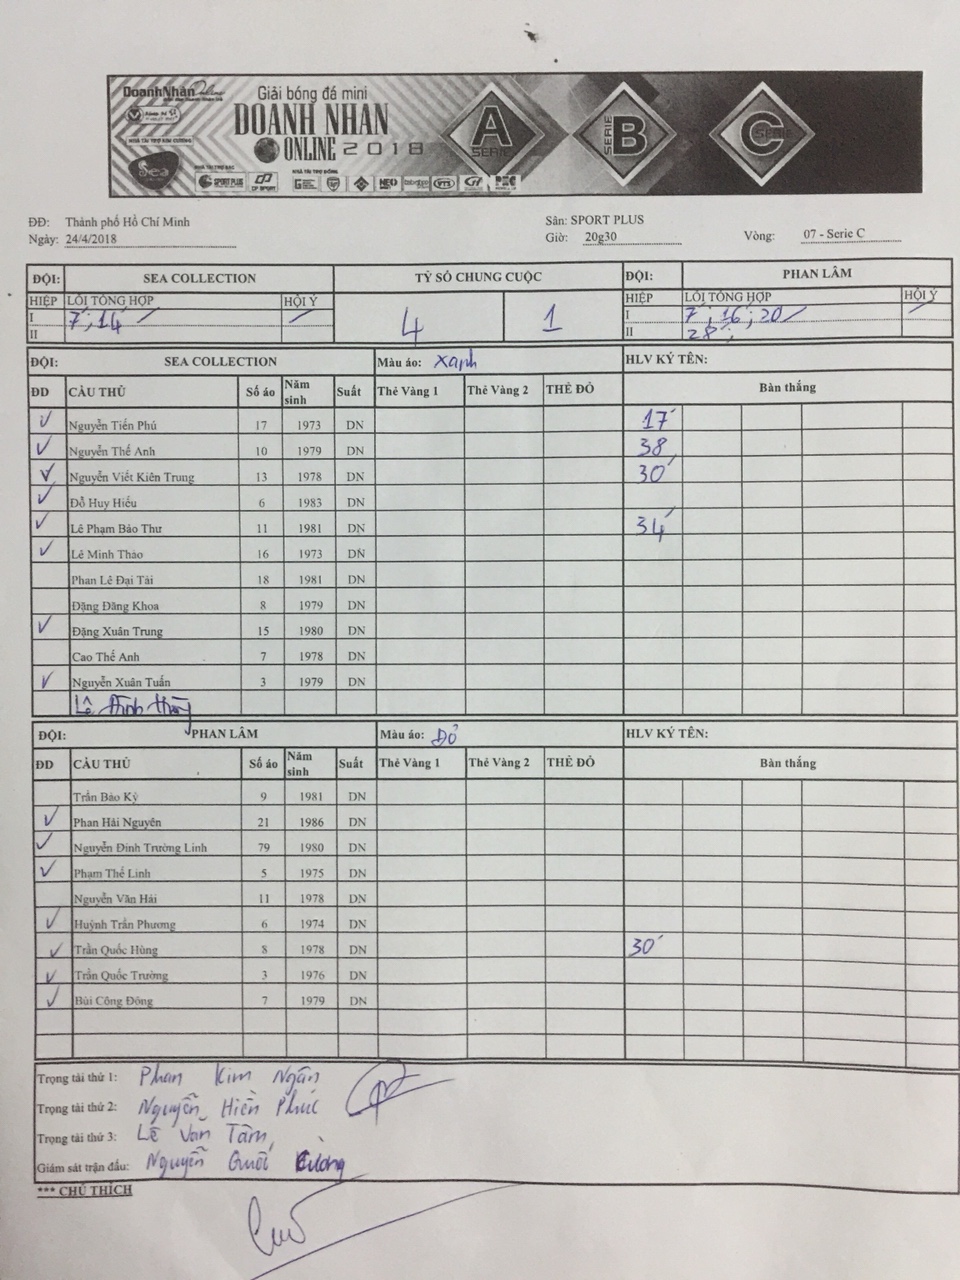 DoanhNhân Online
Giải bóng đá mini
DOANH NHÂN
ONLINE 2018
A SERIE
SERIE B
C SERIE
NHÀ TÀI TRỢ KIM CƯƠNG
Sea
NHÀ TÀI TRỢ BẠC
SPORT PLUS
CP SPORT
NHÀ TÀI TRỢ ĐỒNG
NEO
VTS
ĐĐ: Thành phố Hồ Chí Minh Sân: SPORT PLUS
Ngày: 24/4/2018 Giờ: 20g30 Vòng: 07 - Serie C
ĐỘI: SEA COLLECTION TỶ SỐ CHUNG CUỘC ĐỘI: PHAN LÂM
HIỆP LỖI TỔNG HỢP HỘI Ý 4 1 HIỆP LỖI TỔNG HỢP HỘI Ý
I 7'; 14' I 7'; 16'; 20'
II II 28';
ĐỘI: SEA COLLECTION Màu áo: xanh HLV KÝ TÊN:
ĐD CẦU THỦ Số áo Năm sinh Suất Thẻ Vàng 1 Thẻ Vàng 2 THẺ ĐỎ Bàn thắng
✓ Nguyễn Tiến Phú 17 1973 DN 17'
✓ Nguyễn Thế Anh 10 1979 DN 38'
✓ Nguyễn Viết Kiên Trung 13 1978 DN 30'
✓ Đỗ Huy Hiếu 6 1983 DN
✓ Lê Phạm Bảo Thư 11 1981 DN 34'
✓ Lê Minh Thảo 16 1973 DN
Phan Lê Đại Tài 18 1981 DN
Đặng Đăng Khoa 8 1979 DN
✓ Đặng Xuân Trung 15 1980 DN
Cao Thế Anh 7 1978 DN
✓ Nguyễn Xuân Tuấn 3 1979 DN
Lê Đình
ĐỘI: PHAN LÂM Màu áo: Đỏ HLV KÝ TÊN:
ĐD CẦU THỦ Số áo Năm sinh Suất Thẻ Vàng 1 Thẻ Vàng 2 THẺ ĐỎ Bàn thắng
Trần Bảo Kỳ 9 1981 DN
✓ Phan Hải Nguyên 21 1986 DN
✓ Nguyễn Đình Trường Linh 79 1980 DN
✓ Phạm Thế Linh 5 1975 DN
Nguyễn Văn Hải 11 1978 DN
✓ Huỳnh Trần Phương 6 1974 DN
✓ Trần Quốc Hùng 8 1978 DN 30'
✓ Trần Quốc Trường 3 1976 DN
✓ Bùi Công Đông 7 1979 DN
Trọng tài thứ 1: Phan Kim Ngân
Trọng tài thứ 2: Nguyễn Hiền Phúc
Trọng tài thứ 3: Lê Văn Tâm
Giám sát trận đấu: Nguyễn Quốc Cường
*** CHÚ THÍCH